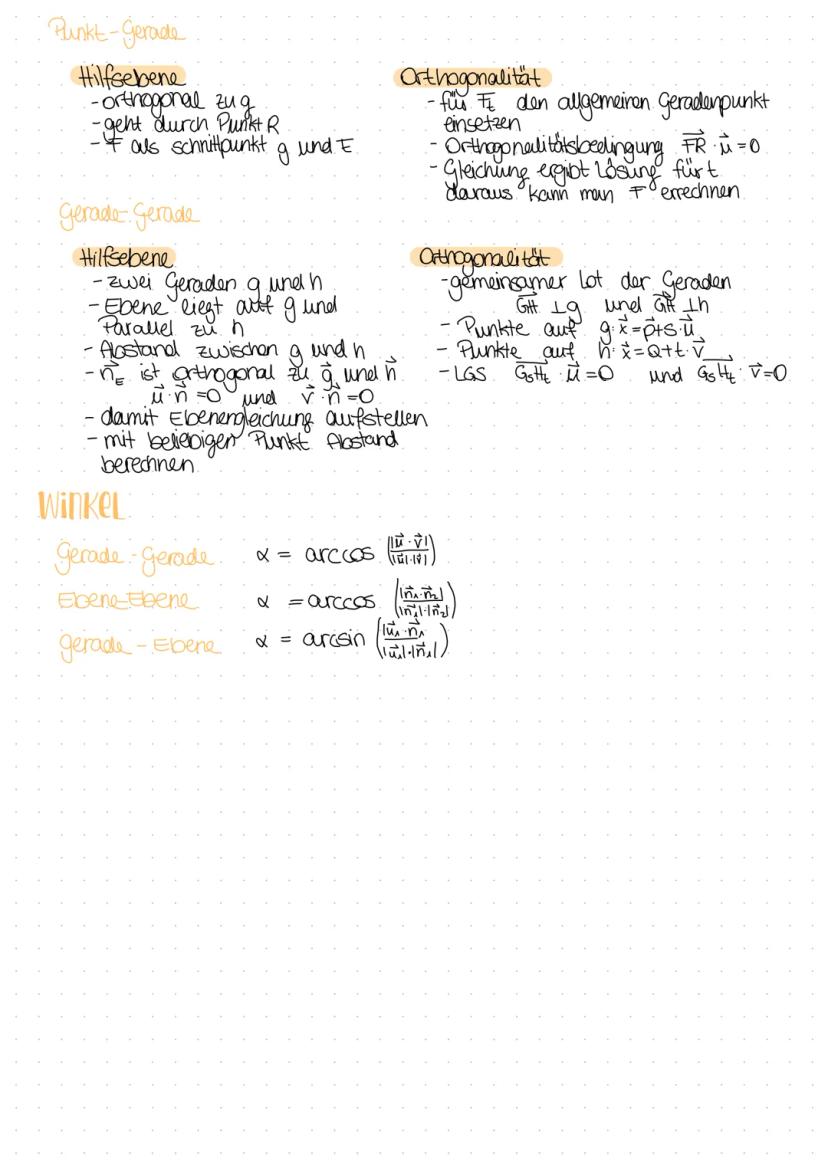 Punkt-Gerade
Hilfsebene
- orthogonal zu g
- geht durch Punkt R
- F als schnittpunkt g und E
Orthogonalität
- für Ft den allgemeinen Geradenpunkt
einsetzen
- Orthogonalitätsbedingung FR⃗ · u⃗ = 0
- Gleichung ergibt Lösung für t
daraus kann man F errechnen
Gerade-Gerade
Hilfsebene
- zwei Geraden g und h
- Ebene liegt auf g und
Parallel zu h
- Abstand zwischen g und h
- n⃗E ist orthogonal zu g⃗ und h⃗
u⃗ · n⃗ = 0 und v⃗ · n⃗ = 0
- damit Ebenengleichung aufstellen
- mit beliebigen Punkt Abstand
berechnen
Orthogonalität
- gemeinsamer Lot der Geraden
GH⃗ ⊥ g und GH⃗ ⊥ h
- Punkte auf g: x⃗ = p⃗ + s · u⃗
- Punkte auf h: x⃗ = Q + t · v⃗
- LGS GsHt⃗ · u⃗ = 0 und GsHt⃗ · v⃗ = 0
WINKEL
gerade - Gerade α = arccos (|u⃗ · v⃗| / |u⃗| · |v⃗|)
Ebene-Ebene α = arccos (|n⃗1 · n⃗2| / |n⃗1| · |n⃗2|)
gerade - Ebene α = arcsin (|u⃗1 · n⃗1| / |u⃗1| · |n⃗1|)